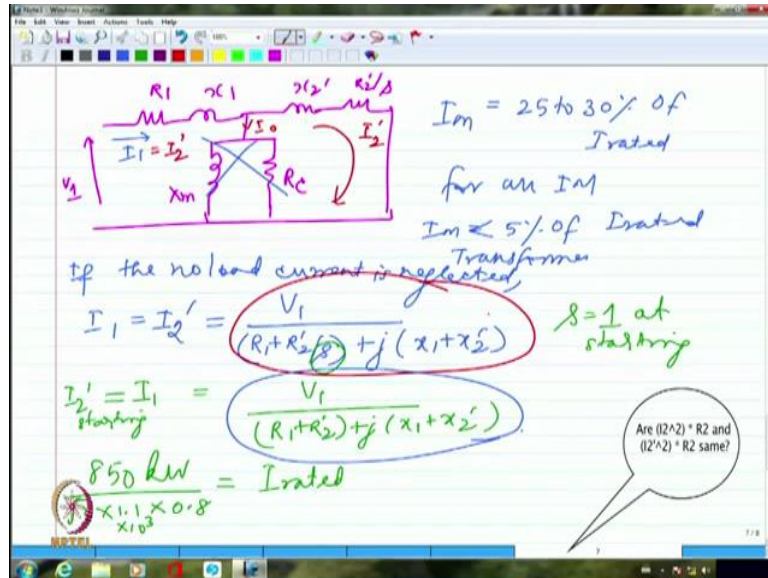 Note1 - Windows Journal
File Edit View Insert Actions Tools Help
100%
B I
R1 x1 x2' R2'/s
I1 = I2'
I0
I2'
V1
Xm
Rc
Im = 25 to 30% of
Irated
for an IM
Im < 5% of Irated
Transformer
If the no load current is neglected,
I1 = I2' = V1 / (R1+R2'/s) + j(x1+x2')
s=1 at
starting
I2' = I1 = V1 / (R1+R2') + j(x1+x2')
starting
850 kW = Irated
×1.1×0.8
×10³
Are (I2^2) * R2 and
(I2'^2) * R2 same?
NPTEL
7 / 8
7